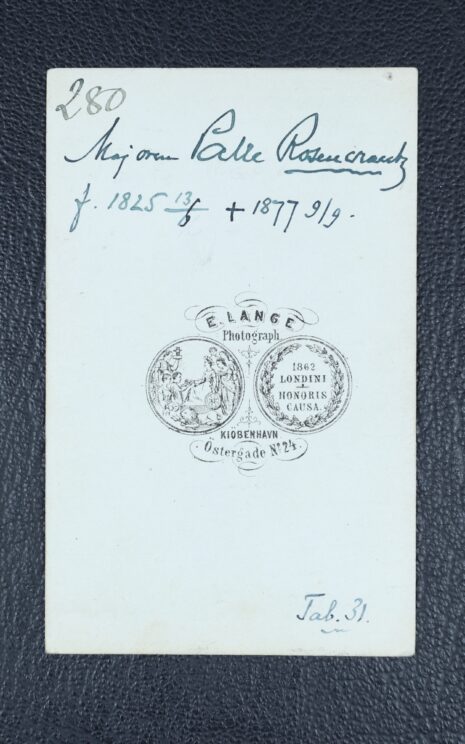 280
Majoren Palle Rosencrantz
f. 1825 13/6 + 1877 9/9.
E. LANGE
Photograph
1862
LONDINI
HONORIS
CAUSA.
KIÖBENHAVN
Östergade No. 24.
Tab. 31.